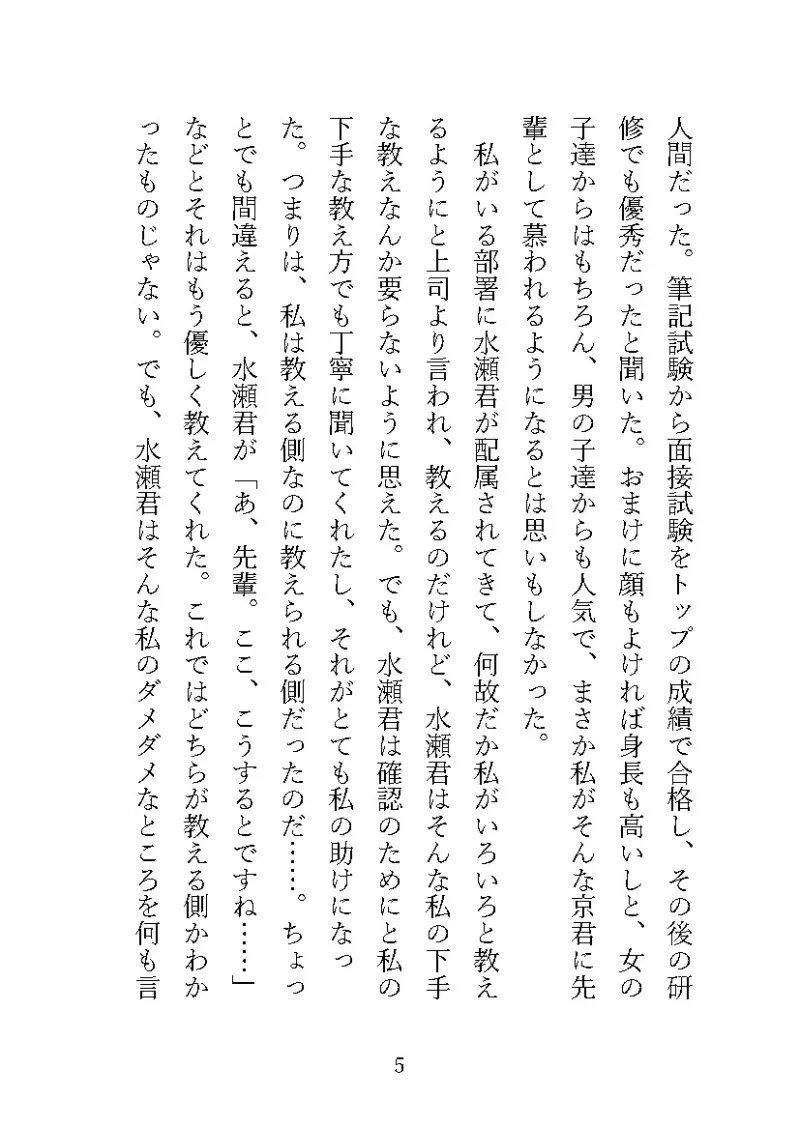 人間だった。筆記試験から面接試験をトップの成績で合格し、その後の研
修でも優秀だったと聞いた。おまけに顔もよければ身長も高いしと、女の
子達からはもちろん、男の子達からも人気で、まさか私がそんな京君に先
輩として慕われるようになるとは思いもしなかった。
　私がいる部署に水瀬君が配属されてきて、何故だか私がいろいろと教え
るようにと上司より言われ、教えるのだけれど、水瀬君はそんな私の下手
な教えなんか要らないように思えた。でも、水瀬君は確認のためにと私の
下手な教え方でも丁寧に聞いてくれたし、それがとても私の助けになっ
た。つまりは、私は教える側なのに教えられる側だったのだ……。ちょっ
とでも間違えると、水瀬君が「あ、先輩。ここ、こうするとですね……」
などとそれはもう優しく教えてくれた。これではどちらが教える側かわか
ったものじゃない。でも、水瀬君はそんな私のダメダメなところを何も言
5